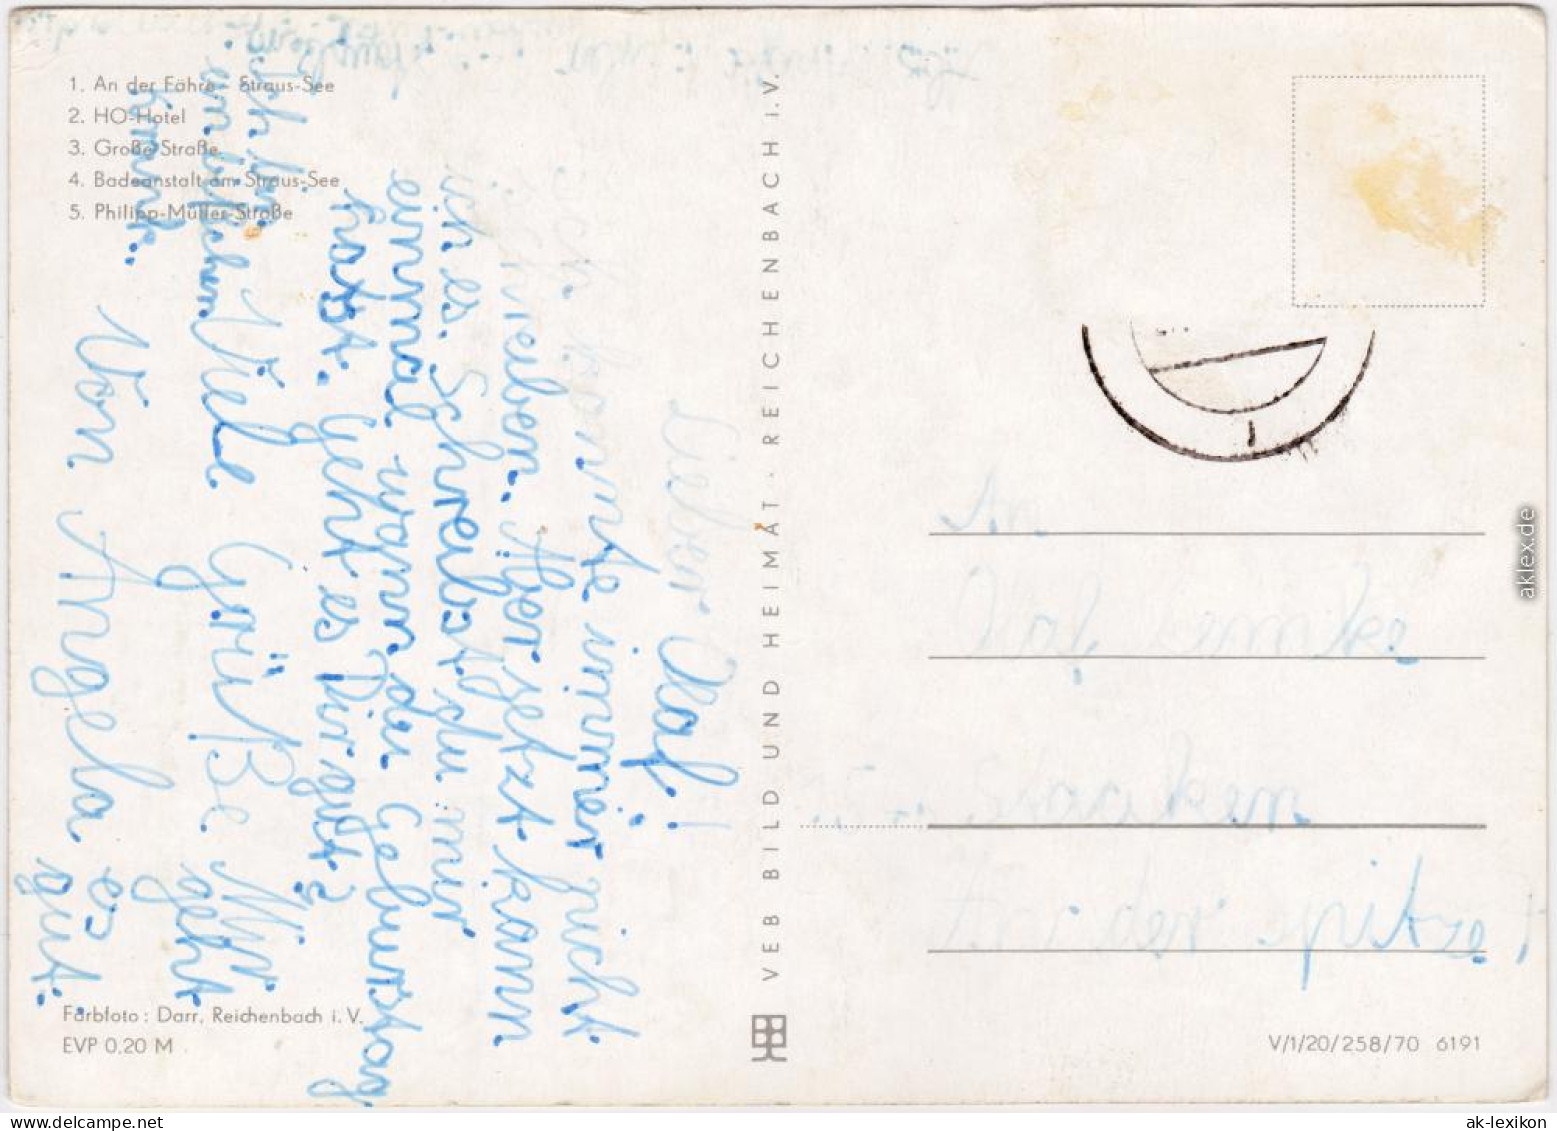 1. An der Fähre - Straus-See
2. HO-Hotel
3. Große Straße
4. Badeanstalt am Straus-See
5. Philipp-Müller-Straße
Lieber Olaf!
Ich konnte immer nicht
schreiben. Aber jetzt kann
ich es. Schreibst du mir
einmal wann du Geburstag
hast. Geht es Dir gut?
Viele Grüße Mir geht
Von Angela es gut.
Ich bin
ein bißchen
krank.
Farbfoto: Darr, Reichenbach i. V.
EVP 0,20 M
VEB BILD UND HEIMAT · REICHENBACH i. V.
An
Lemke
spitze!
V/1/20/258/70 6191
aklex.de
ak-lexikon